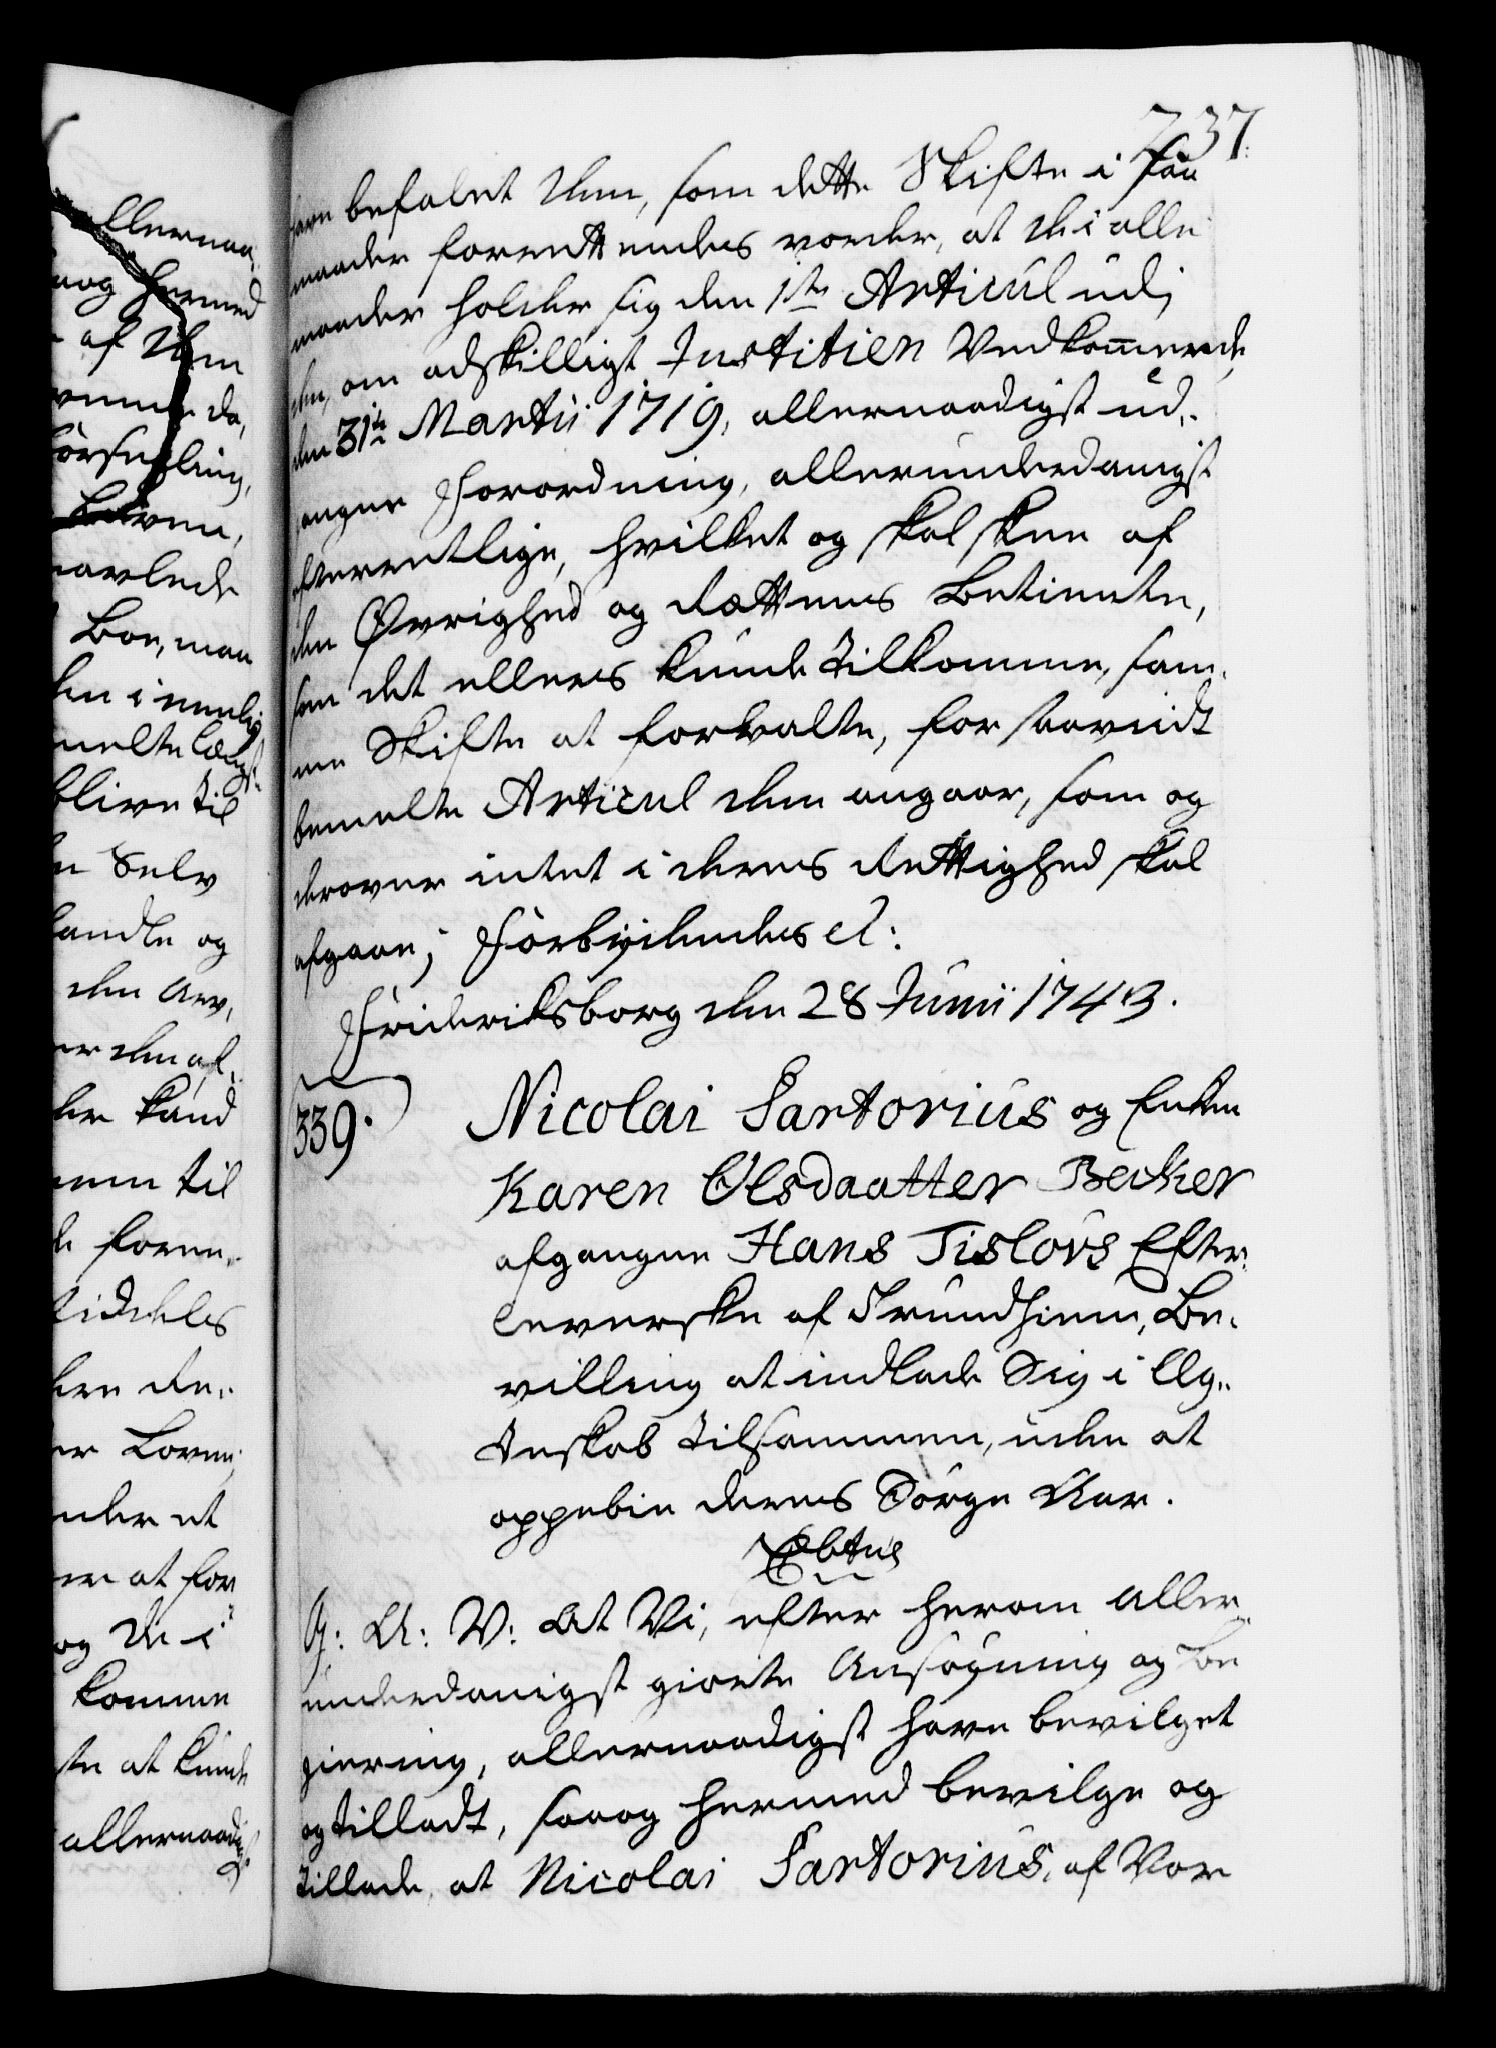 737.
have befalet dem, som dette Skifte i saa
maader forrettendes vorder, at de i alle
maader holder sig den 1ste Articul udi
den, om adskilligt Justitien Vedkommende,
den 31te Martii 1719, allernaadigst ud-
gangne Forordning, allerunderdanigst
efterrettlige, hvilket og skal skee af
den Øvrighed og Rettens Betiente,
som det ellers kunde tilkomme, sam-
me Skifte at forvalte, for saavidt
bemelte Articul dem angaar, som og
derover intet i deres Rettighed skal
afgaae; Forbydendes etc:
Friderichsborg den 28 Junii 1743.
339.
Nicolai Sartorius og Enken
Karen Olsdaatter Becker
afgangne Hans Tislovs Efter-
leverske af Trundhiem, Be-
villing at indlade Sig i Eg-
teskab tilsammen, uden at
oppebie deres Sørge Aar.
G: A: V: At Vi, efter herom aller-
underdanigst giorte Ansøgning og Be
giering, allernaadigst have bevilget
og tilladt, saa og hermed bevilge og
tillade, at Nicolai Sartorius, af Vor
allernaa-
saa og hermed
af Dem
Boe, maa
blive til
Selv
handle og
den Arv,
kand
til
Loven
at for
og De i
komme
at kunde
allernaadigst